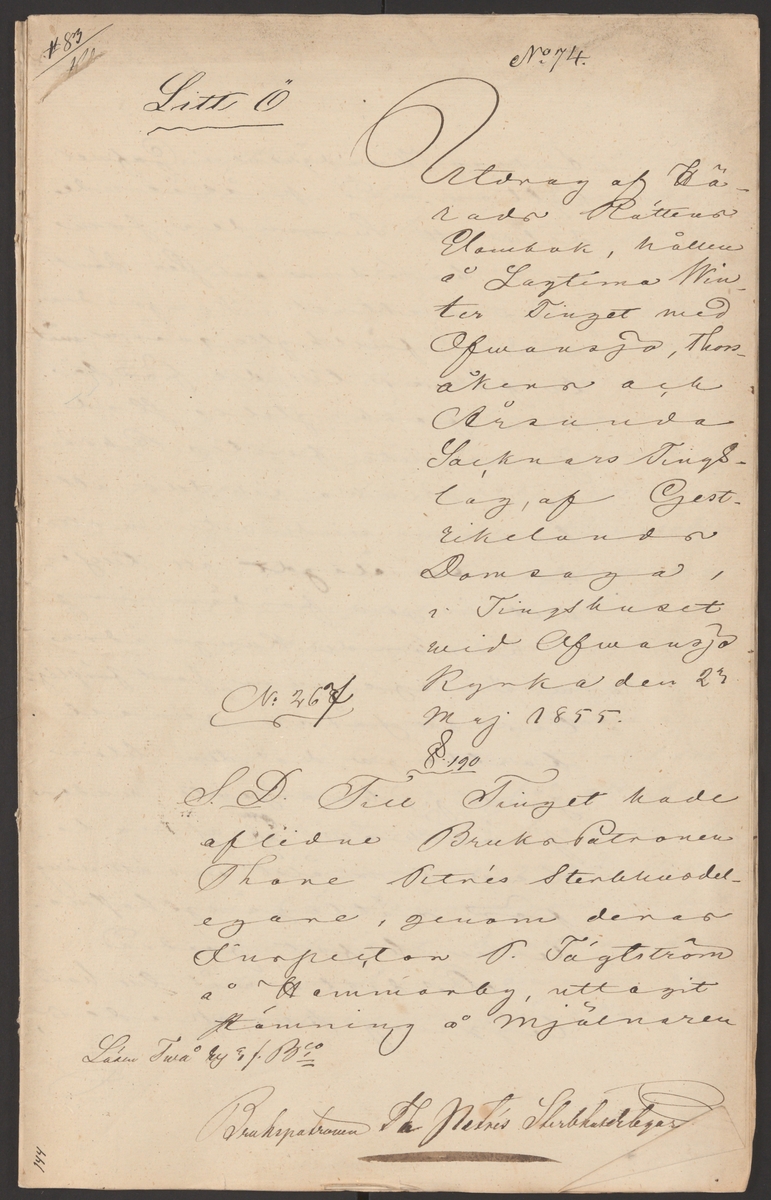 # 83
No 74.
Litt Ö
Utdrag af Hä-
rads Rättens
Dombok, hållen
å Lagtima Win-
ter Tinget med
Ofwansjö, Thors-
åkers och
Årsunda
Socknars Tings-
lag, af Gest-
riklands
Domsaga,
i Tingshuset
wid Ofwansjö
Kyrka den 23
Maj 1855.
No 267
§. 190
S. D. Till Tinget hade
aflidne BruksPatronen
Thore Petrés Sterbhusdel-
egare, genom deras
Inspector P. Tägtström
å Hammarby, uttagit
stämning å Mjölnaren
Lösen Twå 3 f. Bco
Brukspatronen Th Petrés Sterbhusdelegare
144